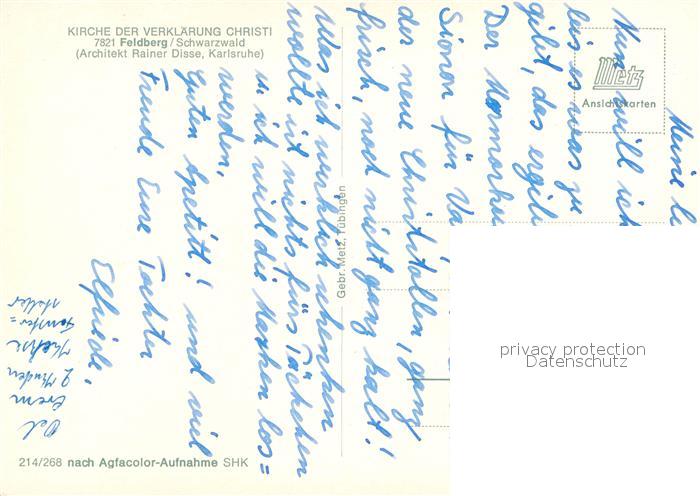 KIRCHE DER VERKLÄRUNG CHRISTI
7821 Feldberg/Schwarzwald
(Architekt Rainer Disse, Karlsruhe)
Metz
Ansichtskarten
Gebr. Metz, Tübingen
Meine l
Nun will ich
bis es was zu
gibt, das ergib
Der Marmorku
Simon für Va
der neue Christstollen, ganz
frisch, noch nicht ganz kalt!
Was ich wirklich schenken
wollte ist nichts fürs Päckchen
u. ich will die Kuchen los=
werden,
Guten Apetitt! und viel
Freude Eure Tochter
Elfriede,
privacy protection
Datenschutz
214/268 nach Agfacolor-Aufnahme SHK